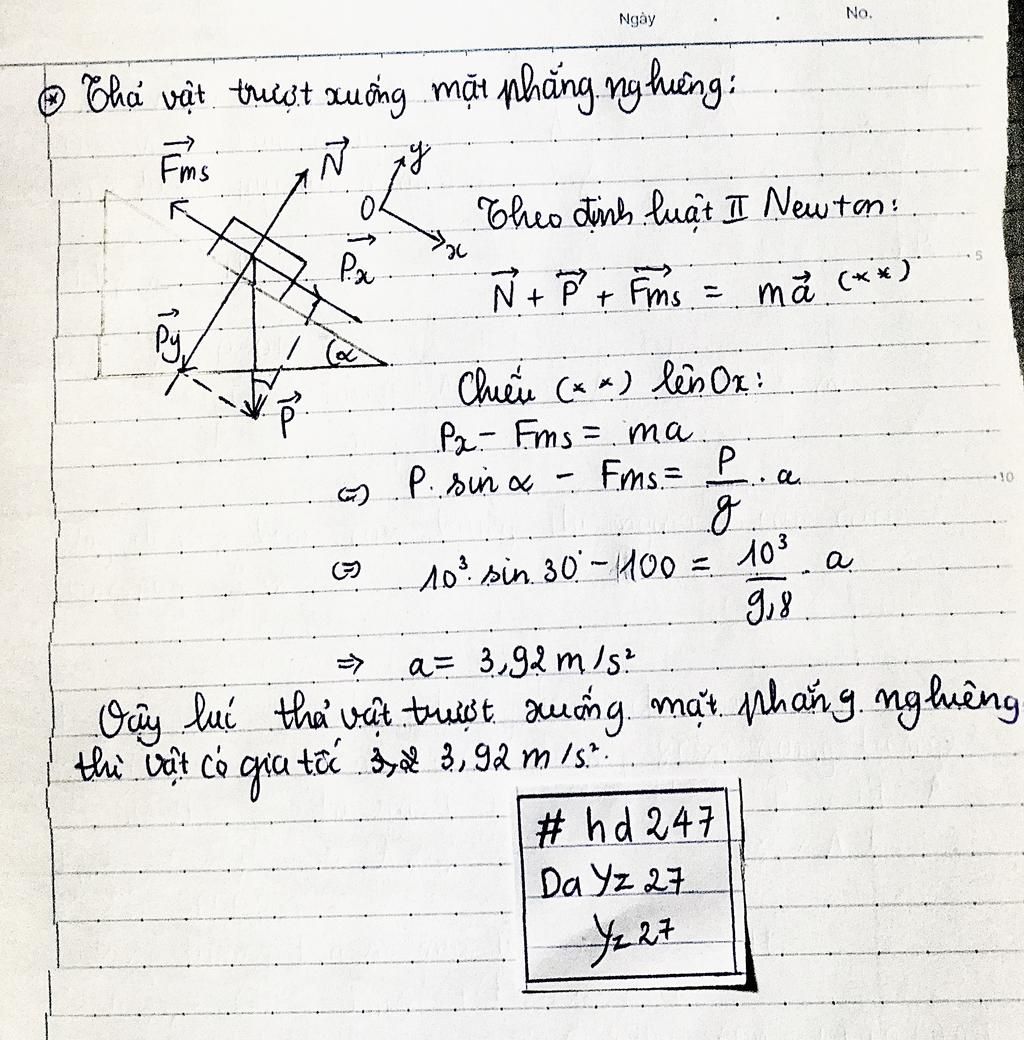 Ngày . . No.
⊛ Thả vật trượt xuống mặt phẳng nghiêng:
Fms N y
O x
Px
Theo định luật II Newton:
N + P + Fms = ma (**)
Py
α
P
Chiếu (**) lên Ox:
Px - Fms = ma
⇔ P. sin α - Fms = P/g . a
⇔ 10³. sin 30° - 100 = 10³/9,8 . a
⇒ a = 3,92 m/s²
Vậy lúc thả vật trượt xuống mặt phẳng nghiêng
thì vật có gia tốc 3,92 m/s².
5
10
# hd 247
Da Yz 27
Yz 27